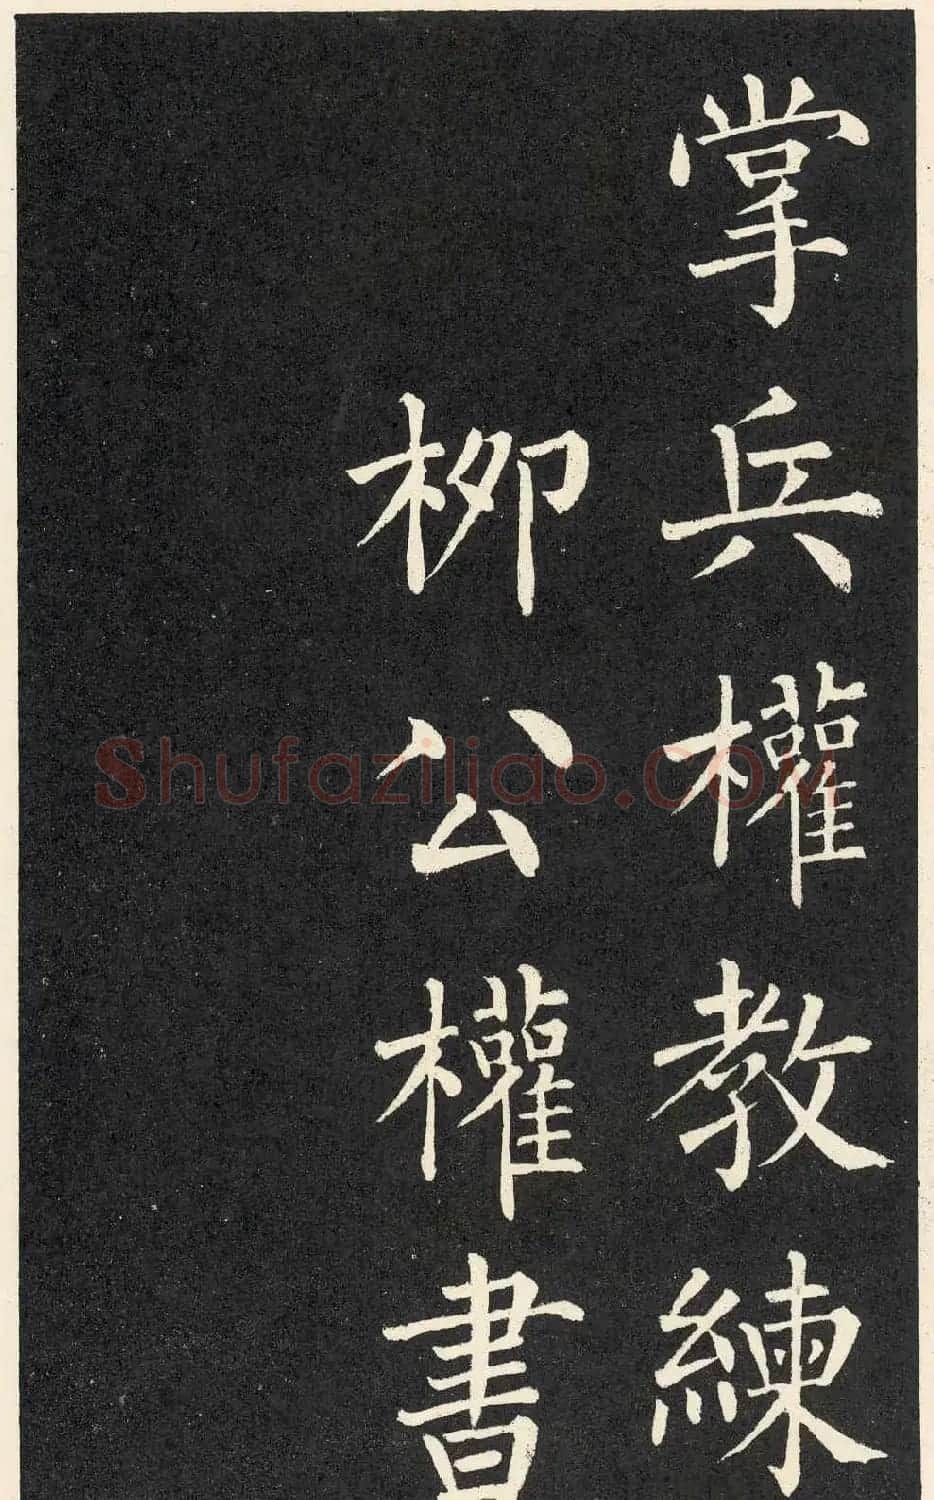 掌兵權教練
柳公權書
Shufaziliao.COM